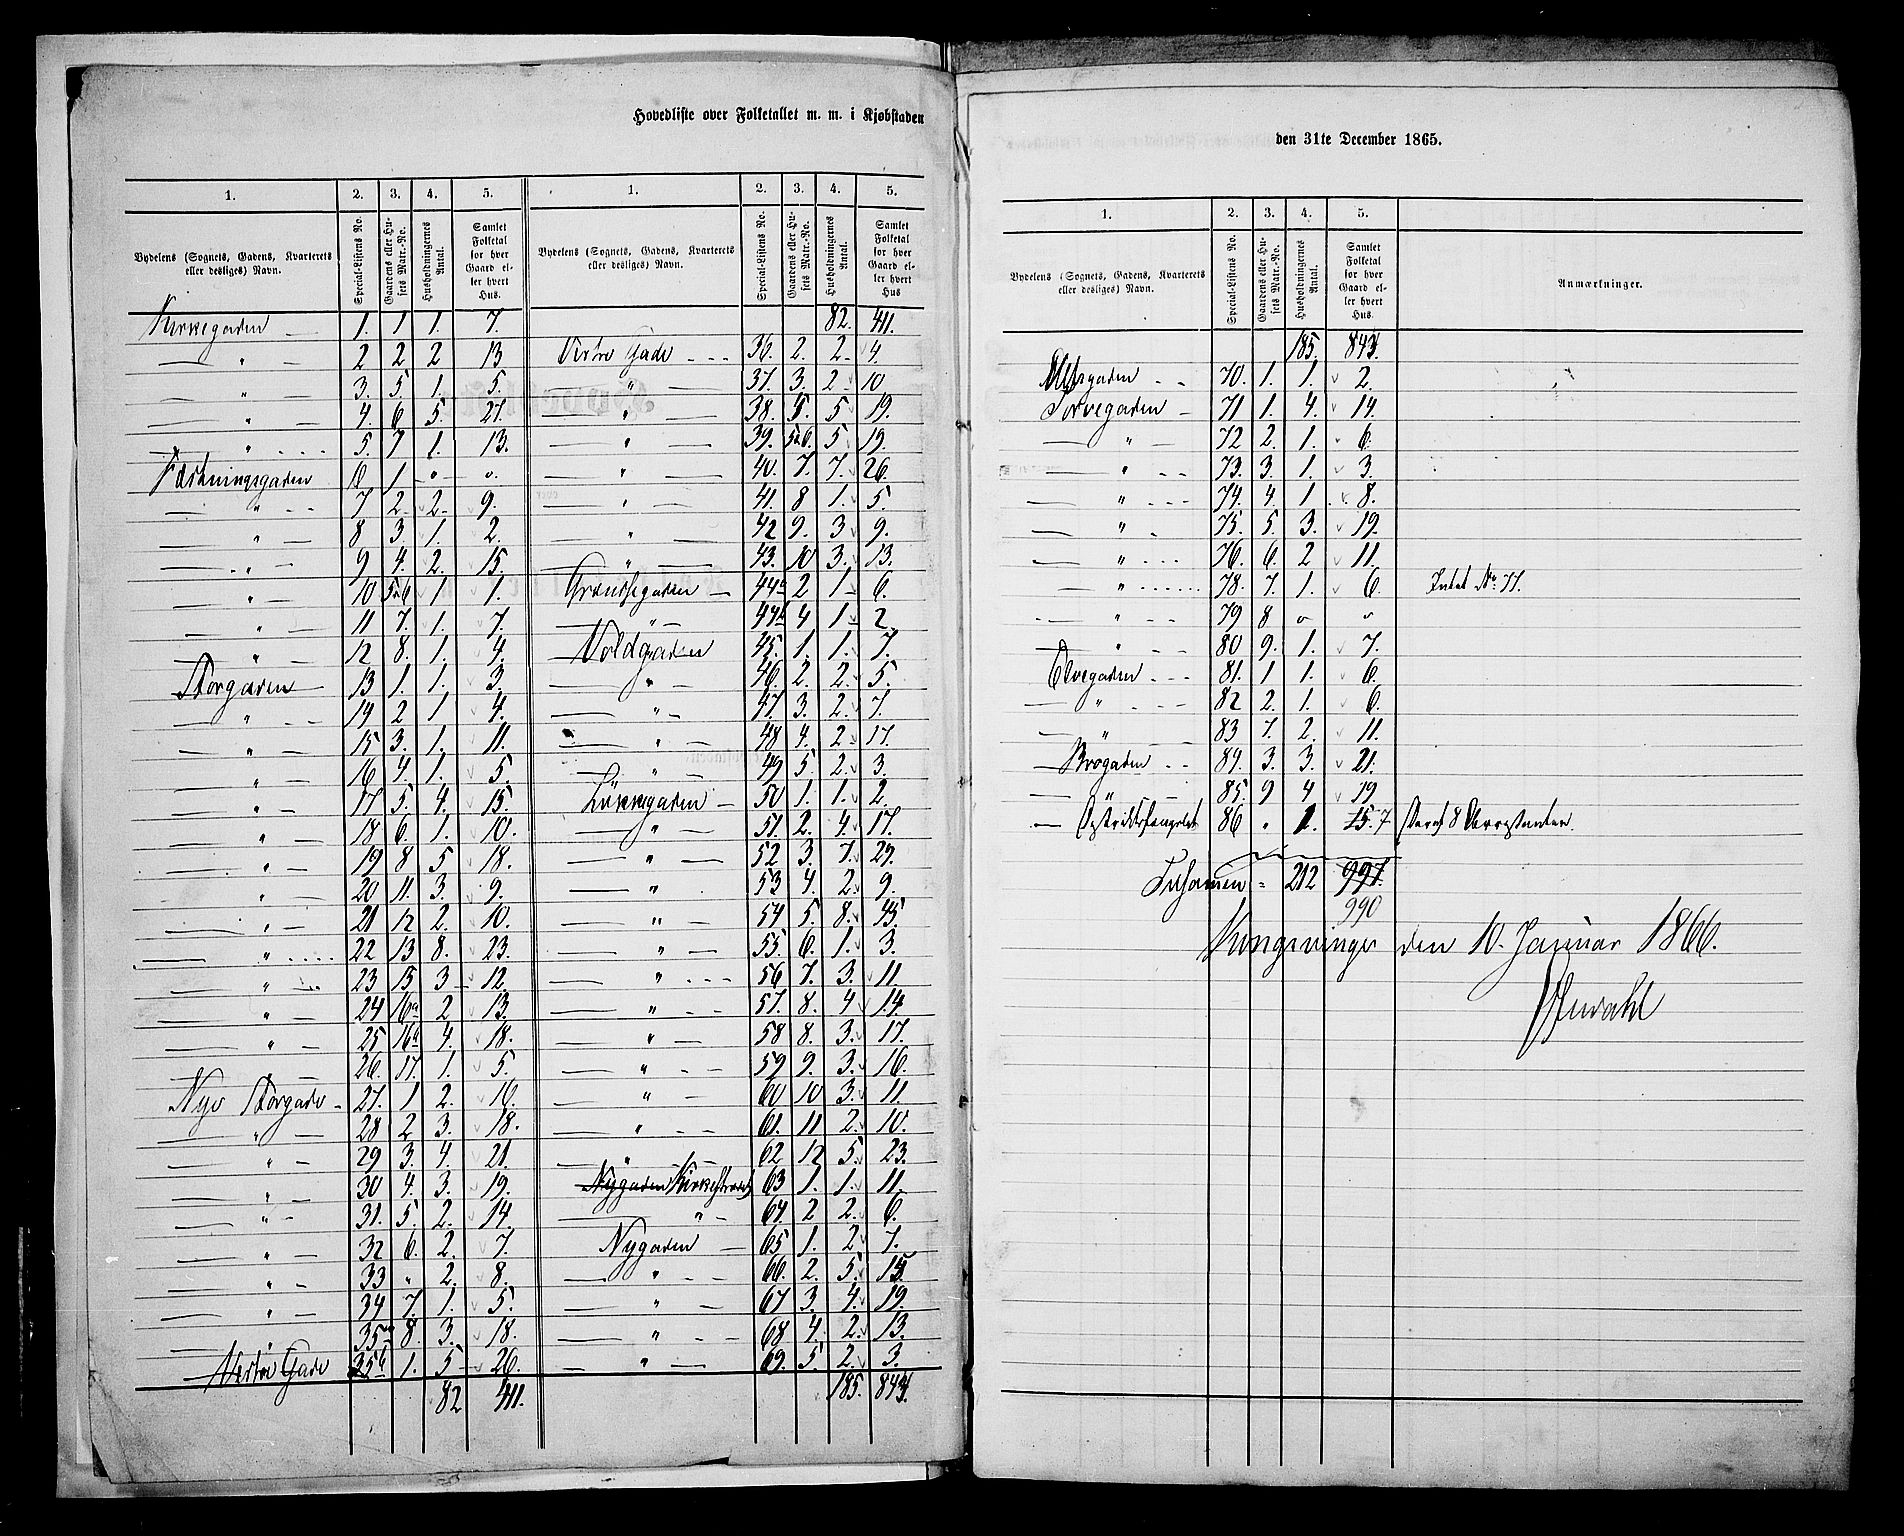 Hovedliste over Folketallet m. m. i Kjøbstaden
1. 2. 3. 4. 5.
Bydelens (Sognets, Gadens, Kvarterets eller desliges) Navn. Special-Listens No. Gaardens eller Husets Matr.-No. Husholdningernes Antal. Samlet Folketal for hver Gaard eller hvert Hus.
Kirkegaden 1. 1 1. 7.
" 2 2 2 13
" 3. 5 1. 5.
" 4. 6 5. 21.
" 5. 7 1. 13.
Fæstningsgaden 6 1 " o.
" 7 2. 2. 9.
" 8 3. 1. 2.
" 9 4. 2. 15.
" 10 5&6 1 1.
" 11 7. 1. 7.
" 12 8. 1. 4.
Storgaden 13 1. 1. 3.
" 14 2 1. 4.
" 15 3. 1. 11.
" 16 4. 1. 5.
" 17 5. 4. 15.
" 18 6. 1. 10.
" 19 8 5 18.
" 20 11. 3. 9.
" 21 12 2. 10.
" 22 13 8. 23.
" 23 15 3 12.
" 24 16a 2 13.
" 25 4. 18.
" 26. 17. 1. 5.
Nye Storgade 27. 1 2. 16.
" 28 2 3. 18.
" 29 3. 4. 21.
" 30 4. 3. 19.
" 31. 5. 2. 14.
" 32 6. 2. 7.
" 33 " 2. 8.
" 34 7. 1. 5.
" 35a 8. 3. 18.
Vestre Gade 35b 1. 5 26.
82 411.
1. 2. 3. 4. 5.
Bydelens (Sognets, Gadens, Kvarterets eller desliges) Navn. Special-Listens No. Gaardens eller Husets Matr.-No. Husholdningernes Antal. Samlet Folketal for hver Gaard eller hvert Hus
82. 411.
Vestre Gade 36. 2. 2. 4.
" 37. 3. 2 10
" 38. 5 19.
" 39. 5&6. 5 19.
" 40. 7. 7. 26.
" 41. 8 1. 5.
" 42 9. 3 9.
" 43. 10 3. 13.
Grændsegaden 44a 2 1 6.
" 44b 4 1 2
Voldgaden 45. 1. 1. 7.
" 46. 2. 2. 5.
" 47. 3. 2. 7.
" 48 4. 2 17.
" 49 5. 2. 3.
Løkkegaden 50 1. 1. 2.
" 51. 2. 4. 17.
" 52 3. 7. 29.
" 53 4. 2. 9.
" 54 5. 8. 45.
" 55. 6. 1. 3.
" 56 7. 3. 11
" 57. 8. 4 14.
" 58 8. 3. 17.
" 59 9. 3. 16.
" 60 10 3. 11.
" 61. 11 2. 10.
" 62 12 5. 23.
Nygaden Kirkestrædet 63 1. 1. 11.
" 64. 2 2. 6.
Nygaden 65 1. 2 7.
" 66. 2. 5. 15.
" 67 3. 4. 19.
" 68 4. 2. 13.
" 69. 5. 2. 3.
185. 843.
den 31te December 1865.
1. 2. 3. 4. 5.
Bydelens (Sognets, Gadens, Kvarterets eller desliges) Navn. Special-Listens No. Gaardens eller Husets Matr.-No. Husholdningernes Antal. Samlet Folketal for hver Gaard eller hvert Hus. Anmærkninger.
185. 843.
70. 1. 1. 2.
Torvegaden 71 1. 4. 14.
" 72 2. 1. 6.
" 73. 3. 1. 3.
" 74. 4. 1 8.
" 75. 5. 3. 19.
" 76. 6. 2 11.
" 78. 7. 1. 6. Intet No. 77.
" 79 8 o o
" 80 9. 1. 7.
Elvegaden 81. 1 1. 6.
" 82 2. 1. 6.
" 83 7. 2. 11.
Brogaden 84. 3. 3. 21.
" 85. 9 4 19
Distriktsfængslet 86 " 1. 15. 7 Deraf 8 Arrestanter.
Tilsammen = 212 997.
990
Kongsvinger den 10. Januar 1866.